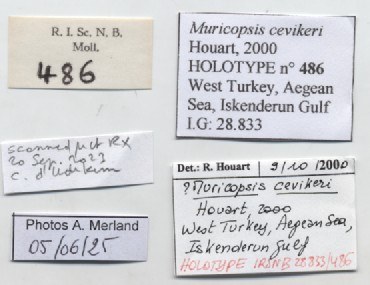 R. I. Sc. N. B.
Moll.
486
Muricopsis cevikeri
Houart, 2000
HOLOTYPE n° 486
West Turkey, Aegean
Sea, Iskenderun Gulf
I.G: 28.833
scanned µct RX
20 Sep. 2023
C. d'Udekem
Photos A. Merland
05/06/25
Det.: R. Houart 9/10/2000
?Muricopsis cevikeri
Houart, 2000
West Turkey, Aegean Sea,
Iskenderun Gulf
HOLOTYPE IRSNB 28.833/486